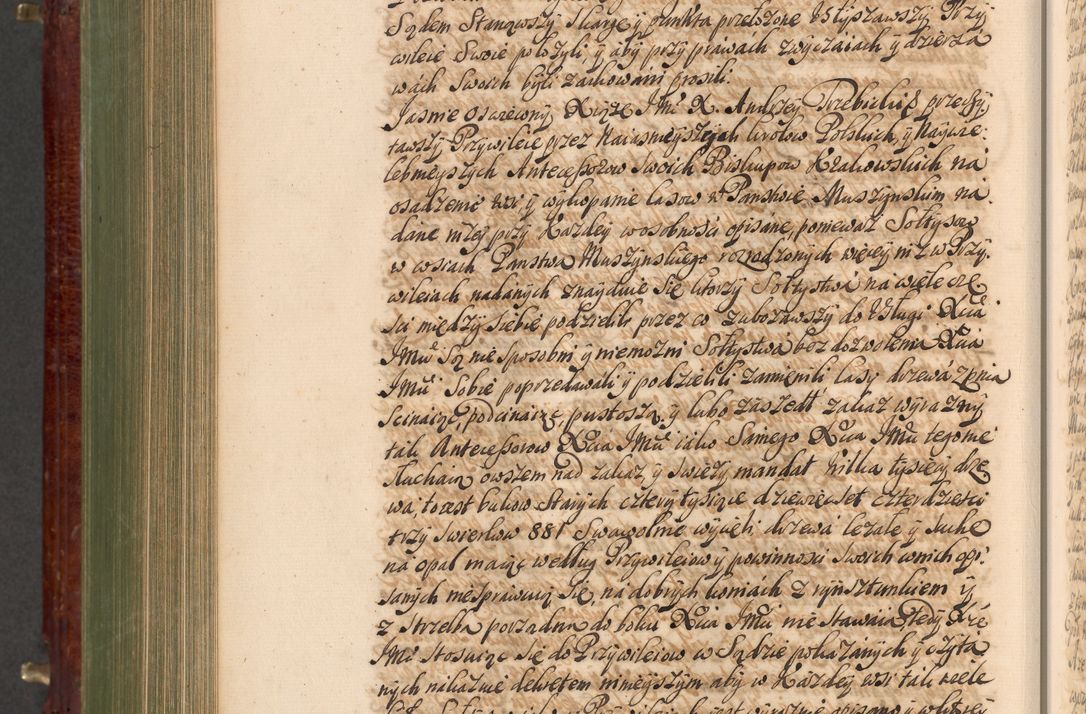 Sądem Stanąwszy Skargę y punkta przełożone Usłyszawszy Przy
wileie Swoie położyli, y aby przy prawach zwyczaiach y dzierża
wach Swoich byli zachowani prosili:
Jaśnie Oświecony Xiąże JMć X. Andrzey Trzebicki przeczy
tawszy Przywileie przez Naiaśnieyszych krolow Polskich, y Nayprze
lebnieyszych Antecessorow Swoich Biskupow Krakowskich na
osadzenie wsi y wykopanie lasow w Panstwie Muszynskim na
dane niżey przy każdey w osobności opisane, ponieważ Sołtysow
w wsiach Panstwa Muszynskiego rozrodzonych więcey niż w Przy
wileiach nadanych znayduie się ktorzy Sołtystwa na wiele czę
sci między siebie podzielili przez co zubożawszy do Usługi Xcia
JMci Są nie sposobni y niemożni Sołtystwa bez dozwolenia Xcia
JMci Sobie poprzedawali y podzielili zamienili lasy drzewa z pnia
scinaiąc, podcinaiąc, pustoszą, y lubo zaszedł zakaz wyrazny
tak Antecessorow Xcia JMci iako Samego Xcia JMci tego nie
słuchaią owszem nad zakaz y swieży mandat kilka tysięcy drze
wa, to iest bukow Starych cztery tysiące dziewięcset czterdziesci
trzy swierkow 881 Swawolnie wycięli, drzewa leżałe y suche
na opał maiąc według Przywileiow y powinnosci Swoich w nich opi
sanych nie sprawuią się, na dobrych koniach z rynsztunkiem y
z strzelbą porządną do boku Xcia JMci nie stawaią, tedy Xże
JMć Stosuiąc się do Przywileiow w Sądzie pokazanych y czyta
nych nakazuie dekretem ninieyszym aby w każdey wsi tak wiele